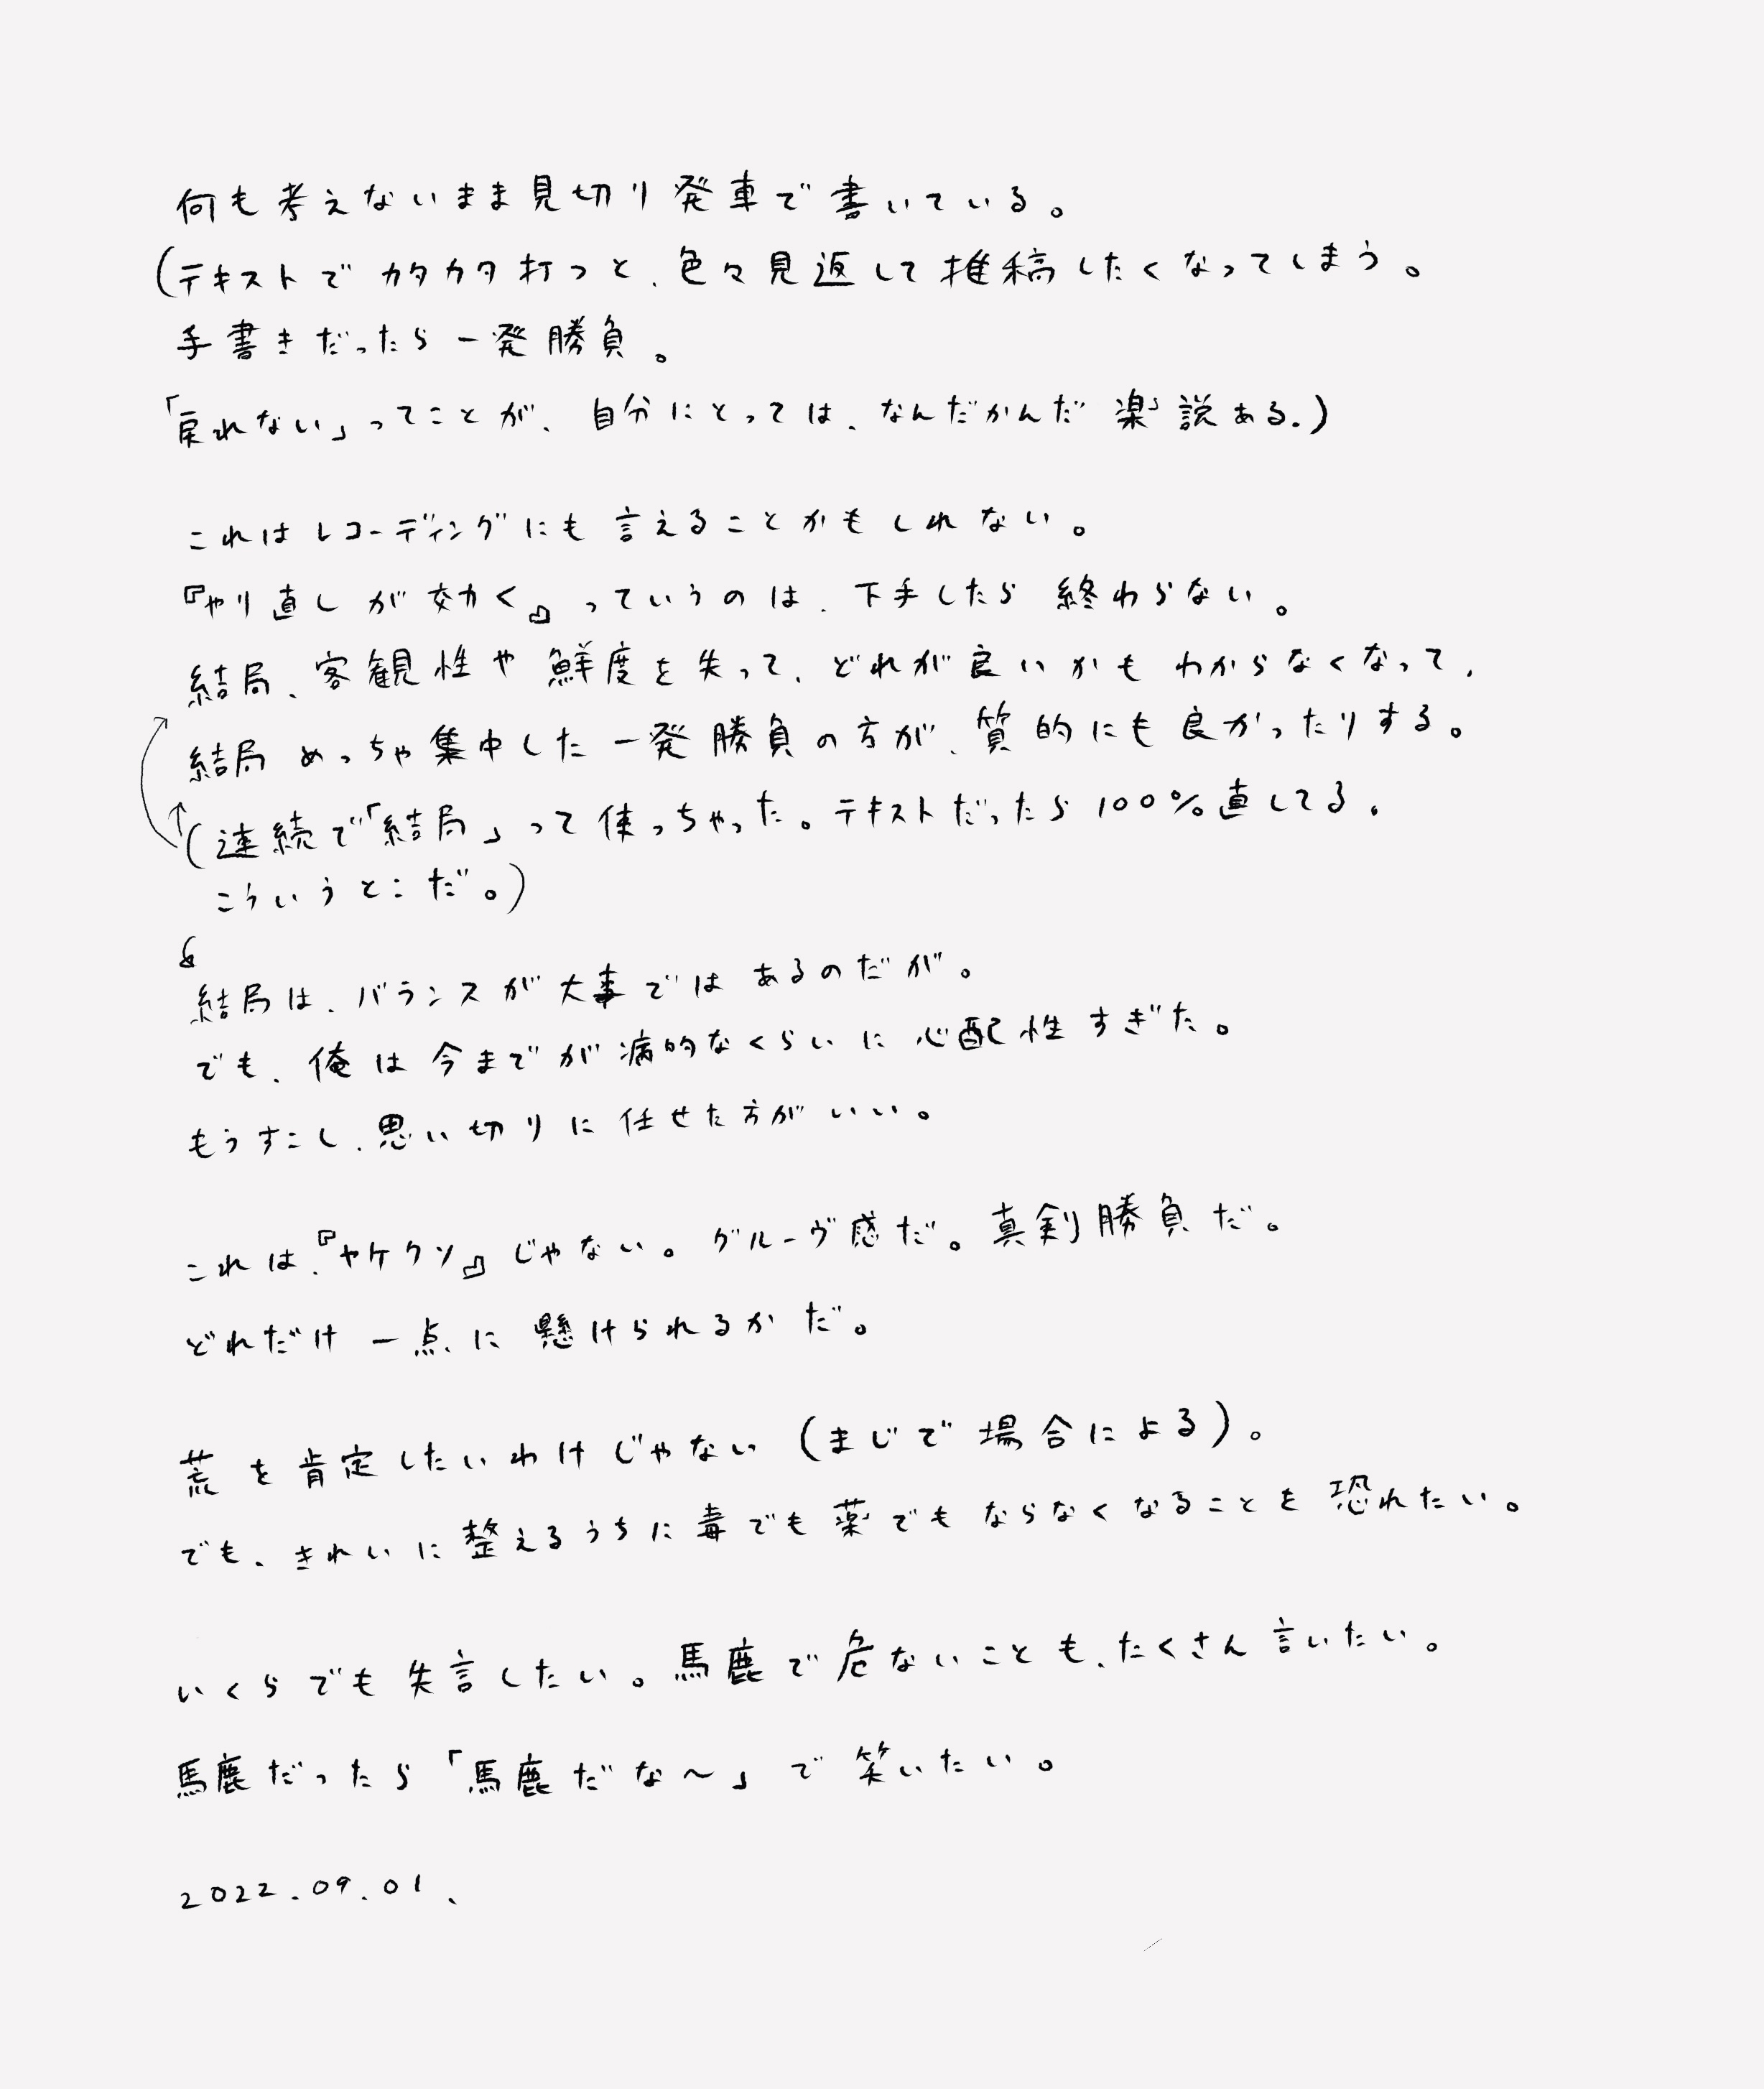 何も考えないまま見切り発車で書いている。
(テキストでカタカタ打つと、色々見返して推稿したくなってしまう。
手書きだったら一発勝負。
「戻れない」ってことが、自分にとっては、なんだかんだ楽説ある。)
これはレコーディングにも言えることかもしれない。
『やり直しが効く』っていうのは、下手したら終わらない。
結局、客観性や鮮度を失って、どれが良いかもわからなくなって、
結局めっちゃ集中した一発勝負の方が、質的にも良かったりする。
(連続で「結局」って使っちゃった。テキストだったら100%直してる。
こういうとこだ。)
結局は、バランスが大事ではあるのだが。
でも、俺は今までが病的なくらいに心配性すぎた。
もうすこし、思い切りに任せた方がいい。
これは、『ヤケクソ』じゃない。グルーヴ感だ。真剣勝負だ。
どれだけ一点に懸けられるかだ。
荒を肯定したいわけじゃない(まじで場合による)。
でも、きれいに整えるうちに毒でも薬でもならなくなることを恐れたい。
いくらでも失言したい。馬鹿で危ないことも、たくさん言いたい。
馬鹿だったら「馬鹿だな〜」で笑いたい。
2022.09.01、